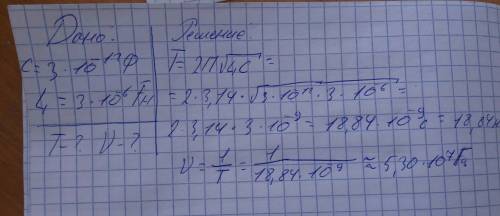 Дано:
C = 3·10⁻¹²Ф
L = 3·10⁻⁶Гн
T-? ν-?
Решение:
T = 2π√LC =
= 2·3,14·√3·10⁻¹²·3·10⁻⁶ =
2·3,14·3·10⁻⁹ = 18,84·10⁻⁹с = 18,84н
ν = 1/T = 1/18,84·10⁻⁹ ≈ 5,30·10⁷Гц